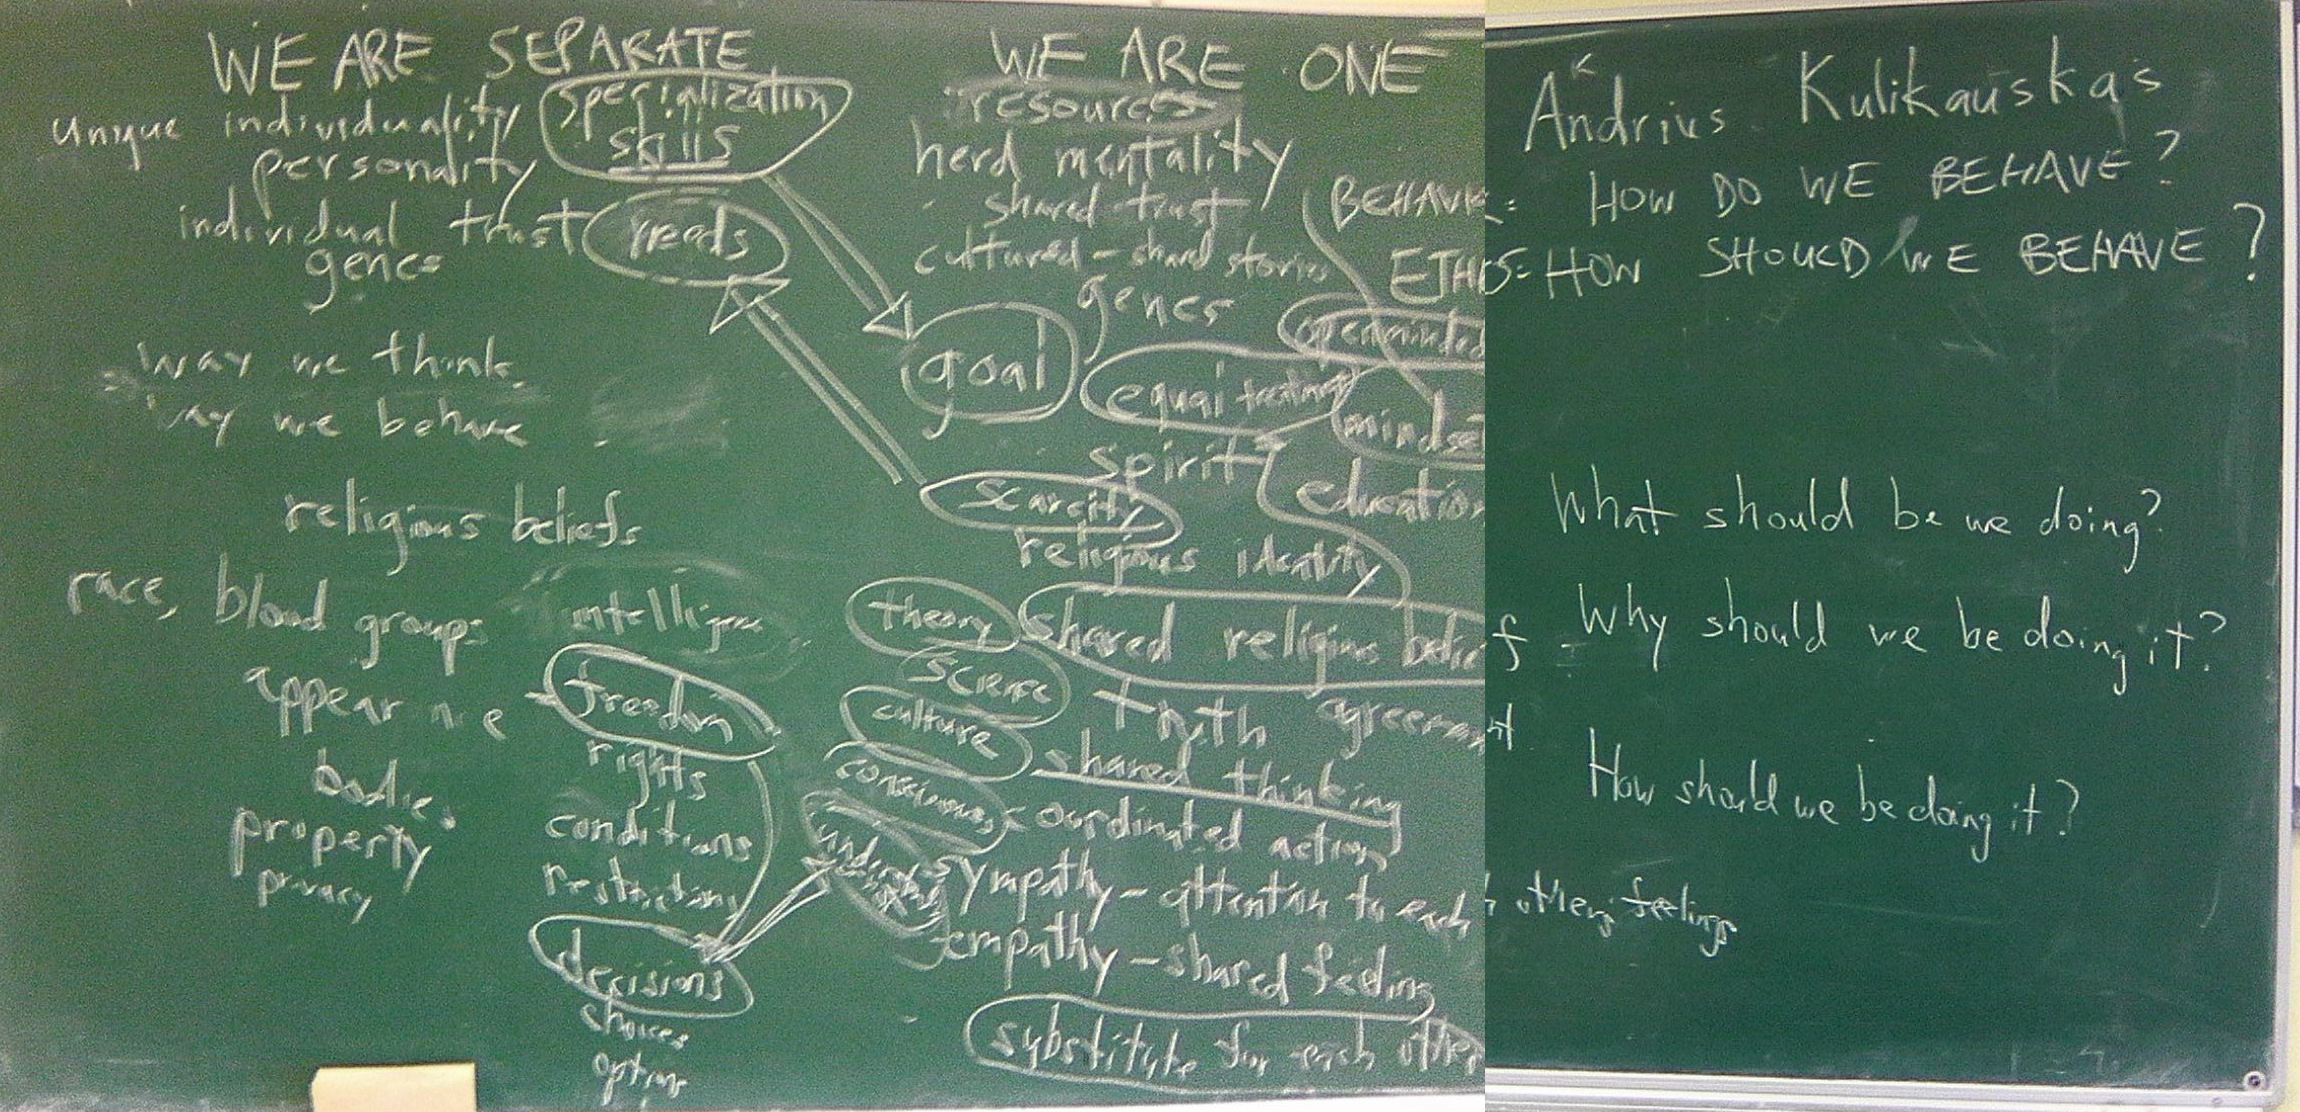 WE ARE SEPARATE
unique individuality
personality
individual trust
genes
specialization
skills
needs
way we think
way we behave
religious beliefs
race, blood groups
appearance
bodies
property
privacy
intelligence
freedom
rights
conditions
restrictions
decisions
choices
options
WE ARE ONE
resources
herd mentality
shared trust
cultured - shared stories
genes
goal
openminded
equal treatment
mindset
spirit
education
scarcity
religious identity
theory
shared religious belief
science
truth agreement
culture
shared thinking
consciousness
coordinated action
sympathy - attention to each others feelings
empathy - shared feeling
substitute for each other
Andrius Kulikauskas
BEHAVIOR = HOW DO WE BEHAVE?
ETHICS = HOW SHOULD WE BEHAVE?
What should be we doing?
Why should we be doing it?
How should we be doing it?